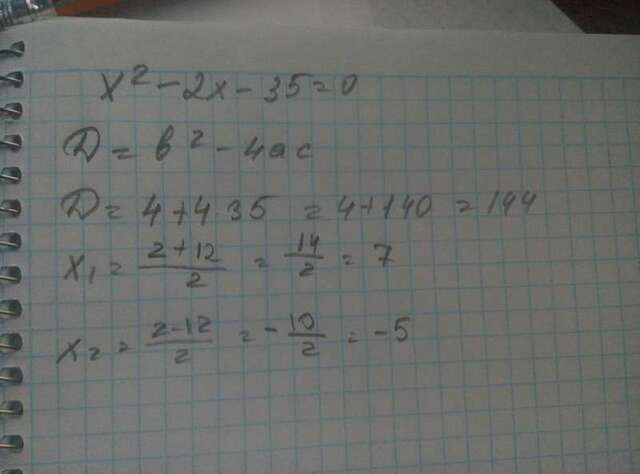 x² - 2x - 35 = 0
D = b² - 4ac
D = 4 + 4 35 = 4 + 140 = 144
x₁ = (2 + 12)/2 = 14/2 = 7
x₂ = (2 - 12)/2 = - 10/2 = -5